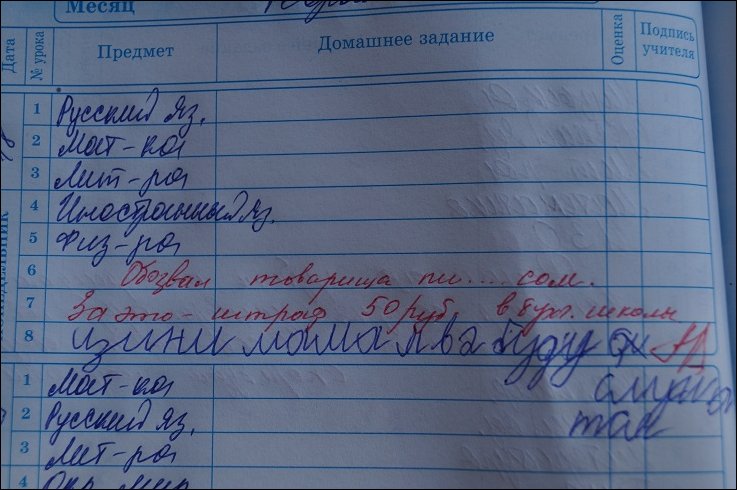 Месяц
Дата
№ урока
Предмет
Домашнее задание
Оценка
Подпись учителя
1 Русский яз.
2 Мат-ка
3 Лит-ра
4 Иностранный яз.
5 Физ-ра
6 Обозвал товарища пи....сом.
7 За это - штраф 50 руб в бух. школы
8 изини мама я ва буду
1 Мат-ка
2 Русский яз.
3 Лит-ра
4 Окр. мир
так